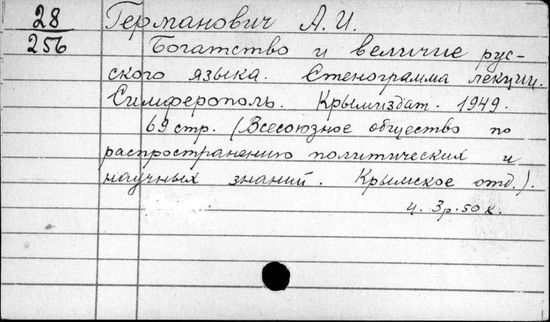 28
256
Германович А.И.
Богатство и величие рус-
ского языка. Стенограмма лекции.
Симферополь. Крымиздат. 1949.
69 стр. (Всесоюзное общество по
распространению политических и
научных знаний. Крымское отд.).
ц. 3р.50к.